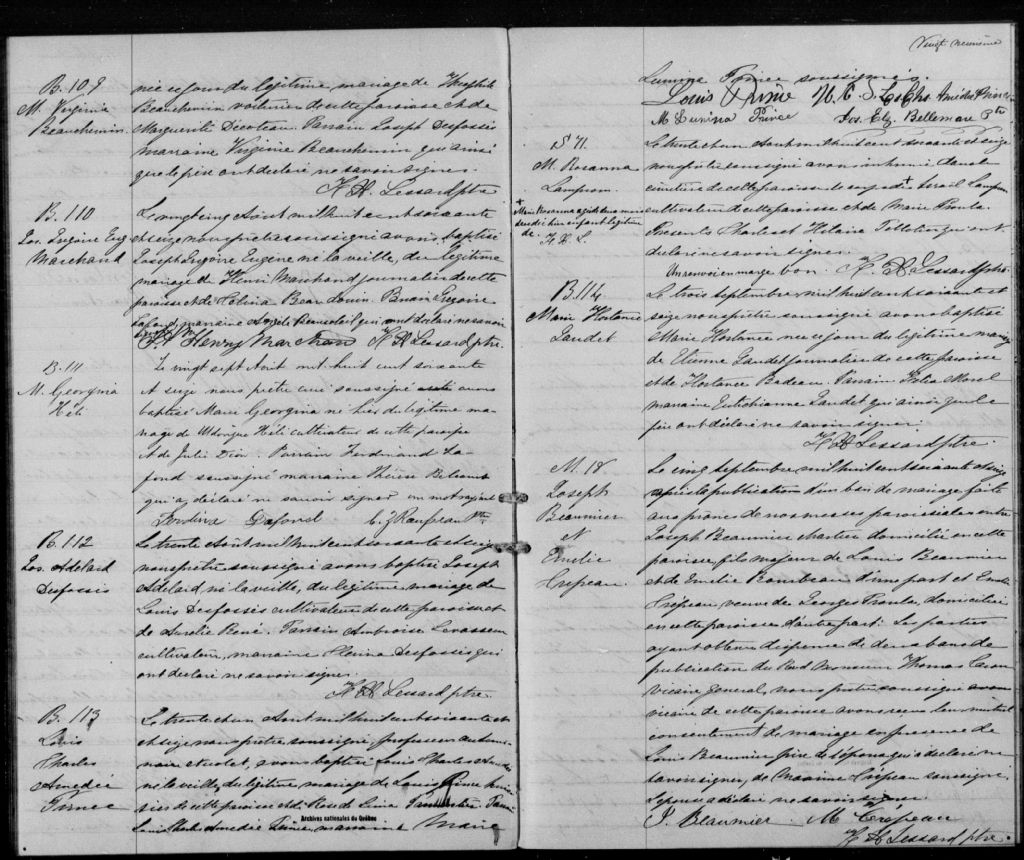 B. 109
M. Virginia
Beauchemin
née ce jour du légitime mariage de Théophile
Beauchemin voiturier de cette paroisse et de
Marguerite Decoteau. Parrain Joseph Desfossés
marraine Virginie Beauchemin qui ainsi
que le père ont déclaré ne savoir signer.
H. H. Lessard ptre
B. 110
Jos. Grégoire Eug
Marchand
Le vingt cinq Août mil huit cent soixante
et seize nous prêtre soussigné avons baptisé
Joseph Grégoire Eugène né la veille, du légitime
mariage de Henri Marchand journalier de cette
paroisse et de Beaudouin. Parrain Grégoire
Lafond, marraine Angèle Beausoleil qui ont déclaré ne savoir
Henry Marchand H. H. Lessard ptre.
B. 111
M. Georgina
Héli
Le vingt sept Août mil huit cent soixante
et seize nous prêtre curé soussigné avons
baptisé Marie Georgina né hier du légitime ma-
riage de Héli cultivateur de cette paroisse
et de Julie Parrain Ferdinand La-
fond soussigné marraine Thérèse
qui a déclaré ne savoir signer un mot rayé nul
Lafond C. Z. Rousseau Ptre
B. 112
Jos. Adelard
Desfossés
Le trente Août mil huit cent soixante et seize
nous prêtre soussigné avons baptisé Joseph
Adélard, né la veille, du légitime mariage de
Louis Desfossés cultivateur de cette paroisse et
de Aurélie René. Parrain Ambroise Levasseur
cultivateur, marraine Desfossés qui
ont déclaré ne savoir signer.
H. H. Lessard ptre
B. 113
Louis
Charles
Amédié
Prince
Le trente et un Août mil huit cent soixante et
et seize nous prêtre soussigné, professeur au semi-
naire de Nicolet, avons baptisé Louis Charles Amédée
né la veille, du légitime mariage de Louis Prince
de cette paroisse et de Parrain
Louis Charles Amédée Prince, marraine Marie
Archives nationales du Québec
Vingt neuvième
Prince soussignés.
Louis Prince Amédée Prince
M. Prince Jos. Elz. Bellemare Ptre
S 71.
M. Rosanna
Lampron
+
Marie Rosanna agée de un mois
décédée hier enfant légitime
de
H. H. L.
Le trente et un Août mil huit cent soixante et seize
nous prêtre soussigné avons inhumé dans le
cimetière de cette paroisse le corps de + Israël Lampron
cultivateur de cette paroisse et de Marie Proulx.
Présents Charles et Hilaire qui ont
déclaré ne savoir signer.
Un renvoi en marge bon. H. H. Lessard ptre.
B. 114
Marie Hortance
Gaudet
Le trois Septembre mil huit cent soixante et
seize nous prêtre soussigné avons baptisé
Marie Hortance née ce jour du légitime mariage
de Etienne Gaudet journalier de cette paroisse
et de Hortance Badeau. Parrain Morel
marraine Gaudet qui ainsi que le
père ont déclaré ne savoir signer.
H H Lessard ptre.
M. 18
Joseph
Beaumier
&
Emelie
Crépeau
Le cinq Septembre mil huit cent soixante et seize
après la publication d'un ban de mariage faite
aux prônes de nos messes paroissiales entre
Joseph Beaumier charretier domicilié en cette
paroisse, fils majeur de Louis Beaumier
et de Emelie Bourbeau d'une part et Emelie
Crépeau, veuve de Georges Proulx, domiciliée
en cette paroisse d'autre part. Les parties
ayant obtenu dispense de deux bans de
publication du Révd Monsieur Thomas Caron
Vicaire général, nous prêtre soussigné
vicaire de cette paroisse avons reçu leur mutuel
consentement de mariage en présence de
Louis Beaumier frère de l'époux qui a déclaré ne
savoir signer, de Maxime Crépeau soussigné.
L'épouse a déclaré ne savoir signer.
J. Beaumier. M Crépeau
H H Lessard ptre